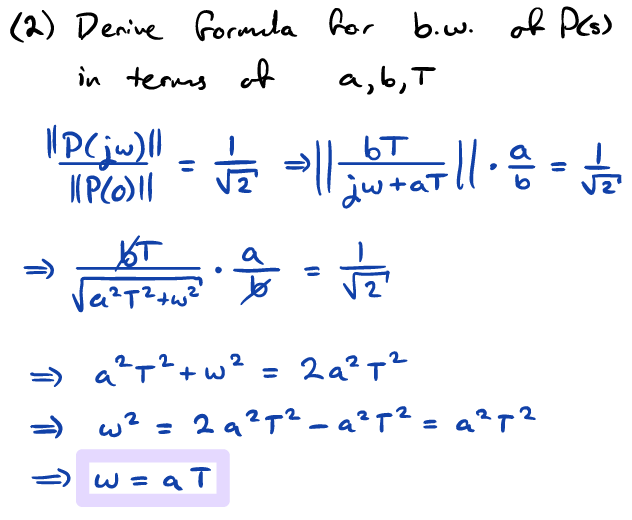 (2) Derive formula for b.w. of P(s)
in terms of a, b, T
||P(jω)|| / ||P(0)|| = 1/√2 ⇒ || bT / (jω + aT) || · a/b = 1/√2
⇒ bT / √(a²T² + ω²) · a/b = 1/√2
⇒ a²T² + ω² = 2a²T²
⇒ ω² = 2a²T² − a²T² = a²T²
⇒ ω = aT